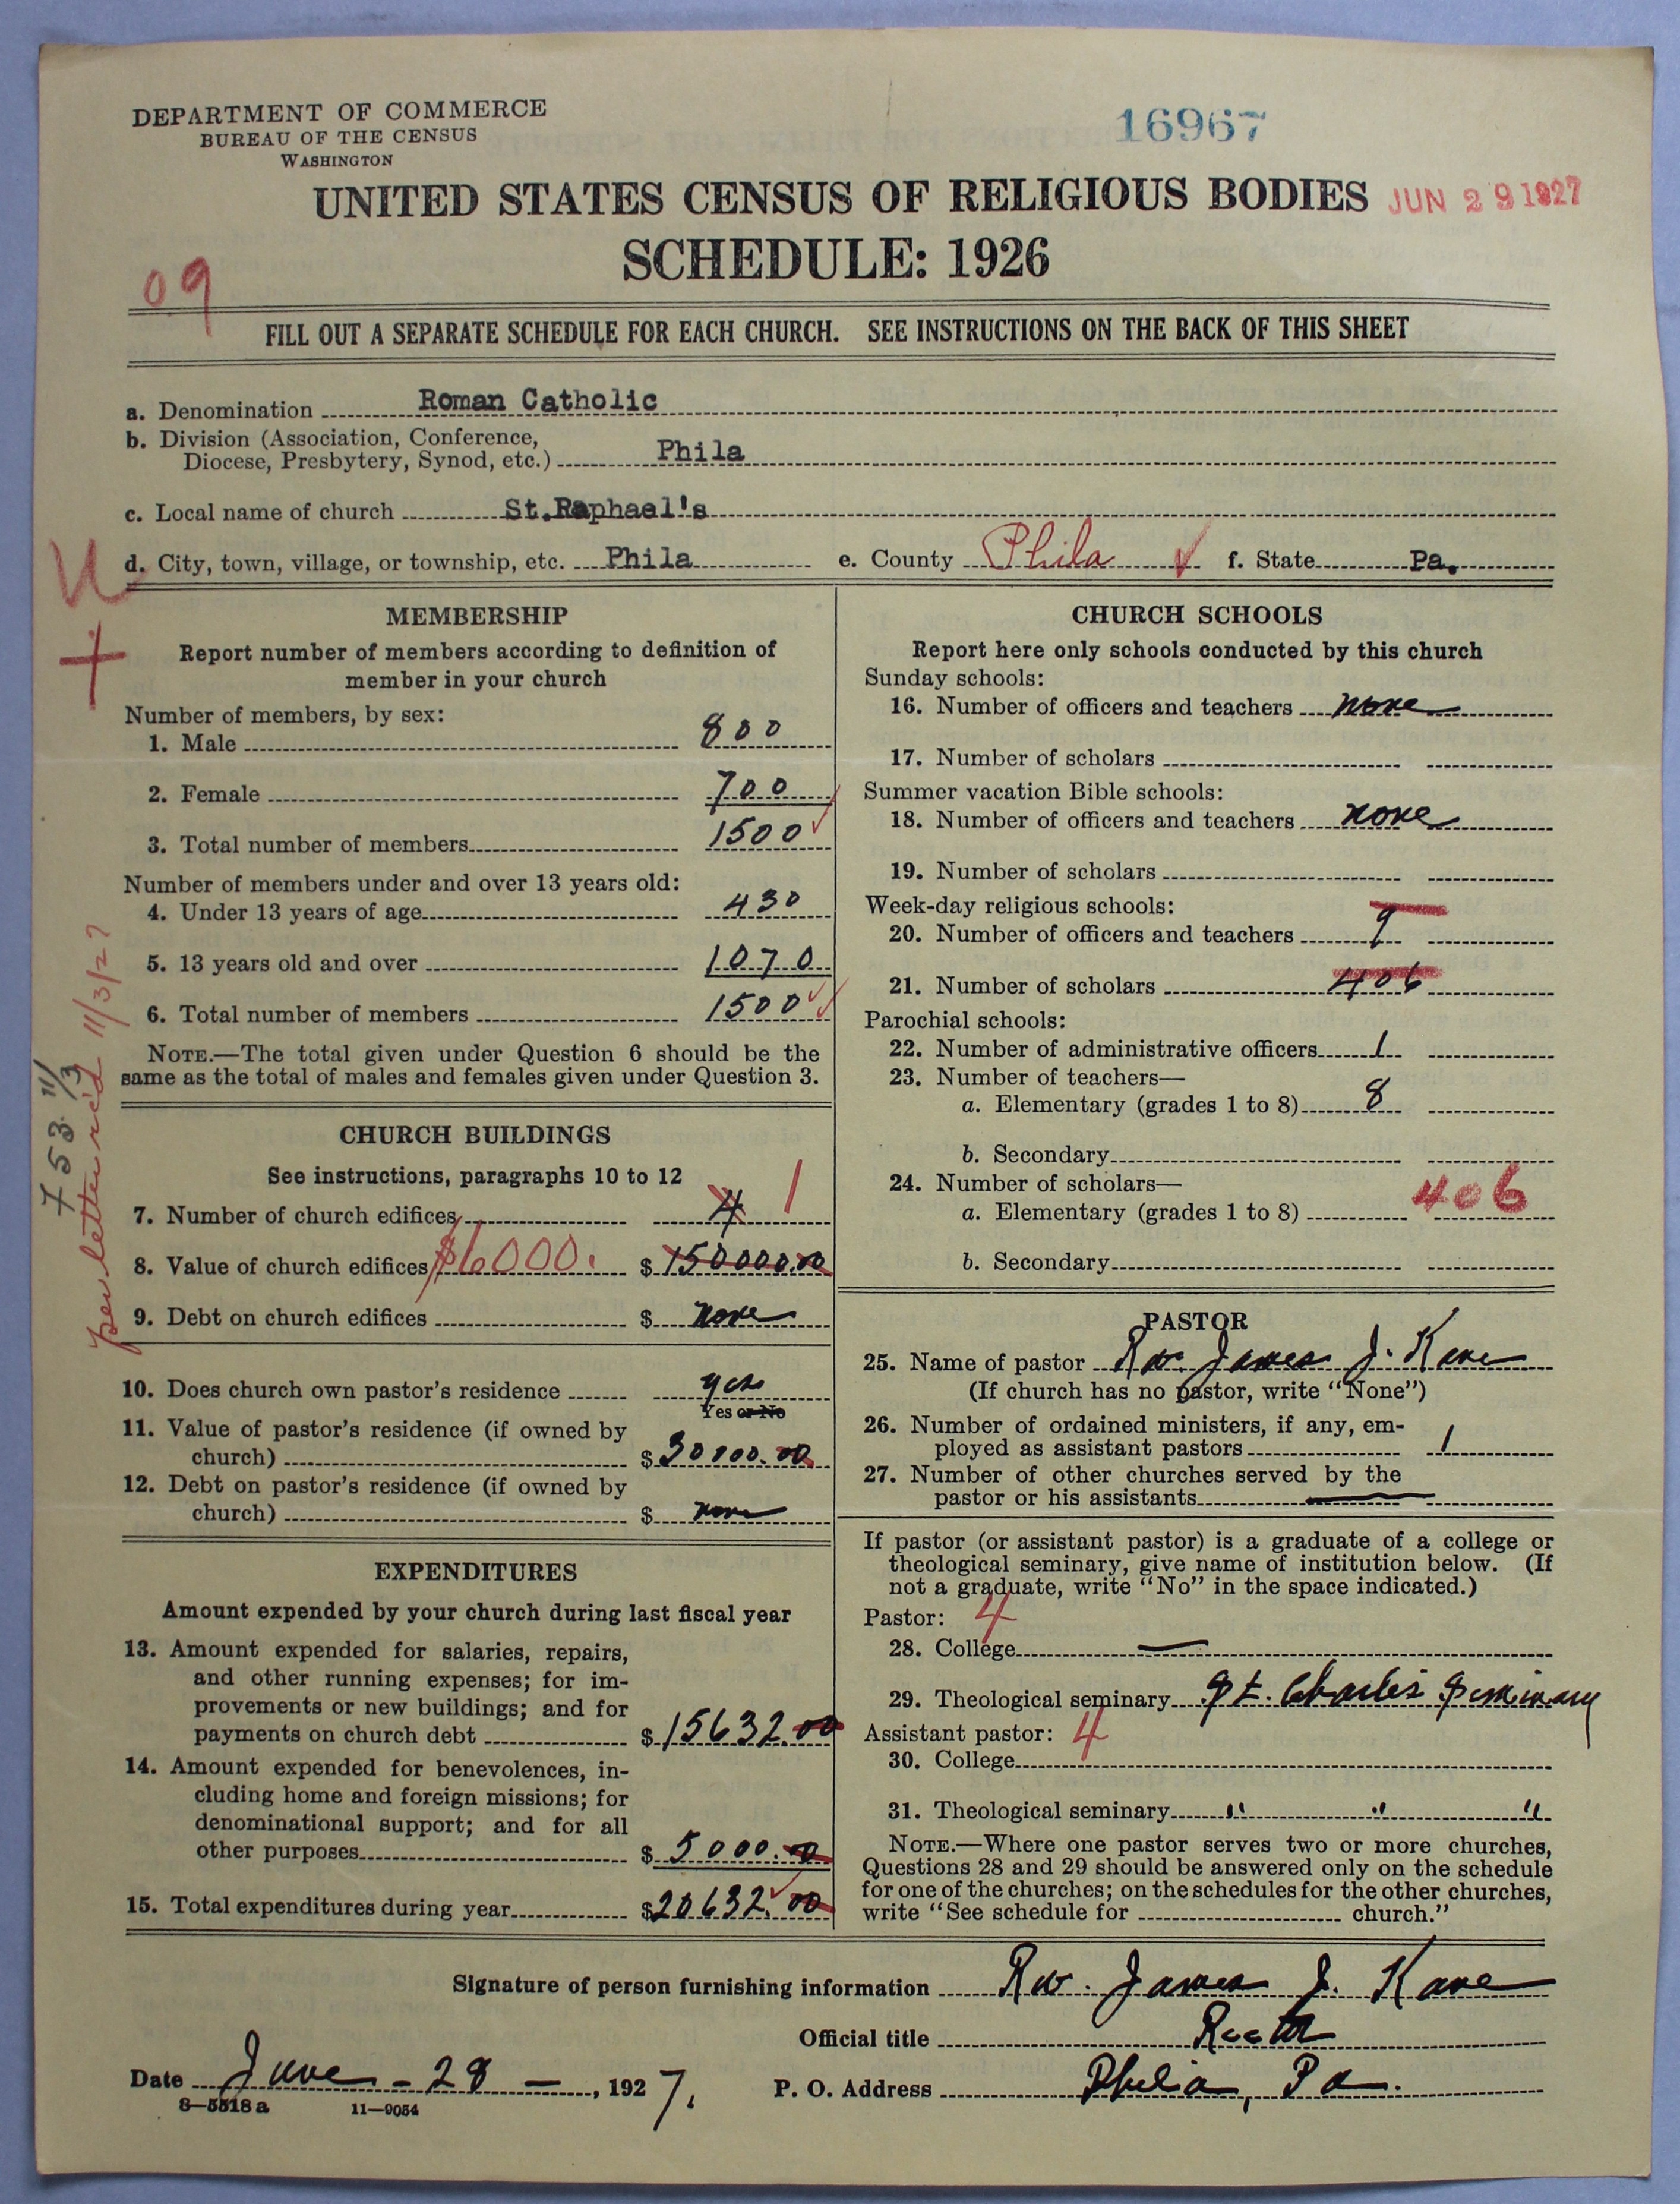 DEPARTMENT OF COMMERCE
BUREAU OF THE CENSUS
WASHINGTON
16967
UNITED STATES CENSUS OF RELIGIOUS BODIES
JUN 29 1927
SCHEDULE: 1926
09
FILL OUT A SEPARATE SCHEDULE FOR EACH CHURCH. SEE INSTRUCTIONS ON THE BACK OF THIS SHEET
a. Denomination Roman Catholic
b. Division (Association, Conference,
Diocese, Presbytery, Synod, etc.) Phila
c. Local name of church St.Raphael's
d. City, town, village, or township, etc. Phila e. County Phila f. State Pa.
U
+
MEMBERSHIP
Report number of members according to definition of
member in your church
Number of members, by sex:
1. Male 800
2. Female 700
3. Total number of members 1500
Number of members under and over 13 years old:
4. Under 13 years of age 430
5. 13 years old and over 1070
6. Total number of members 1500
NOTE.—The total given under Question 6 should be the
same as the total of males and females given under Question 3.
753 11/3
per letter rec'd 11/3/27
CHURCH BUILDINGS
See instructions, paragraphs 10 to 12
7. Number of church edifices 4 1
8. Value of church edifices $6000. $ 150000.00
9. Debt on church edifices $ none
10. Does church own pastor's residence yes
Yes or No
11. Value of pastor's residence (if owned by
church) $ 30000.00
12. Debt on pastor's residence (if owned by
church) $ none
EXPENDITURES
Amount expended by your church during last fiscal year
13. Amount expended for salaries, repairs,
and other running expenses; for im-
provements or new buildings; and for
payments on church debt $ 15632.00
14. Amount expended for benevolences, in-
cluding home and foreign missions; for
denominational support; and for all
other purposes $ 5000.00
15. Total expenditures during year $20632.00
CHURCH SCHOOLS
Report here only schools conducted by this church
Sunday schools:
16. Number of officers and teachers none
17. Number of scholars
Summer vacation Bible schools:
18. Number of officers and teachers none
19. Number of scholars
Week-day religious schools:
20. Number of officers and teachers 9
21. Number of scholars 406
Parochial schools:
22. Number of administrative officers 1
23. Number of teachers—
a. Elementary (grades 1 to 8) 8
b. Secondary
24. Number of scholars—
a. Elementary (grades 1 to 8) 406
b. Secondary
PASTOR
25. Name of pastor Rev. James J. Kane
(If church has no pastor, write "None")
26. Number of ordained ministers, if any, em-
ployed as assistant pastors 1
27. Number of other churches served by the
pastor or his assistants —
If pastor (or assistant pastor) is a graduate of a college or
theological seminary, give name of institution below. (If
not a graduate, write "No" in the space indicated.)
Pastor: 4
28. College —
29. Theological seminary St. Charles Seminary
Assistant pastor: 4
30. College
31. Theological seminary " " "
NOTE.—Where one pastor serves two or more churches,
Questions 28 and 29 should be answered only on the schedule
for one of the churches; on the schedules for the other churches,
write "See schedule for church."
Signature of person furnishing information Rev. James J. Kane
Official title Rector
Date June - 28 - , 1927. P. O. Address Phila, Pa.
8—5518 a 11—9054